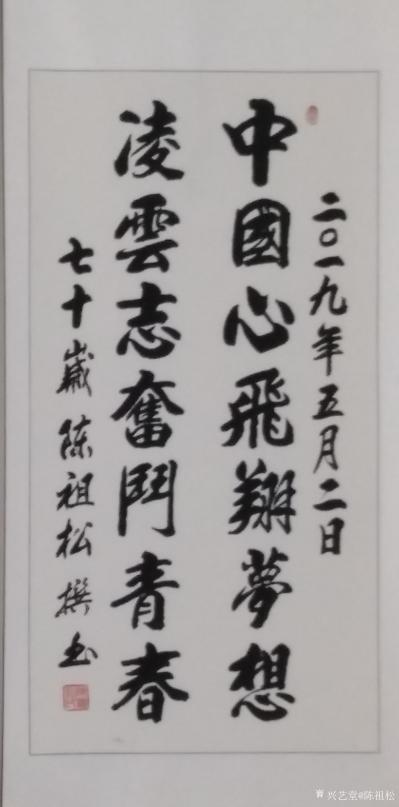 二〇一九年五月二日
中國心飛翔夢想
凌雲志奮鬥青春
七十嵗陈祖松撰书
兴艺堂@陈祖松